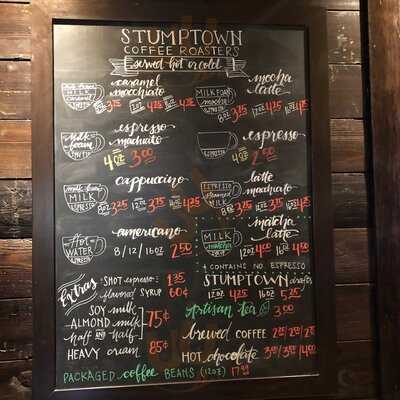 STUMPTOWN
COFFEE ROASTERS
served hot or cold
caramel macchiato
MILK
caramel
8oz 3.75 12oz 4.25 16oz 4.75
mocha latte
MILK FOAM
mocha
8oz 3.75 12oz 4.25 16oz 4.75
espresso machiato
milk foam
4oz 3.00
espresso
4oz 2.50
cappuccino
MILK
8oz 3.25 12oz 3.75 16oz 4.25
latte machiato
ESPRESSO
steamed
MILK
8oz 3.25 12oz 3.75 16oz 4.25
americano
Hot
WATER
8/12/16oz 2.50
matcha latte
MILK
matcha
12oz 4.00 16oz 4.50
* CONTAINS NO ESPRESSO
Extras
SHOT espresso
flavored SYRUP 60¢
SOY milk
ALMOND milk
half AND half
75¢
HEAVY cream 85¢
STUMPTOWN
12oz 4.25 16oz 5.25
Artisan Tea 3.00
brewed COFFEE
HOT chocolate
PACKAGED coffee BEANS (12oz) 17.99